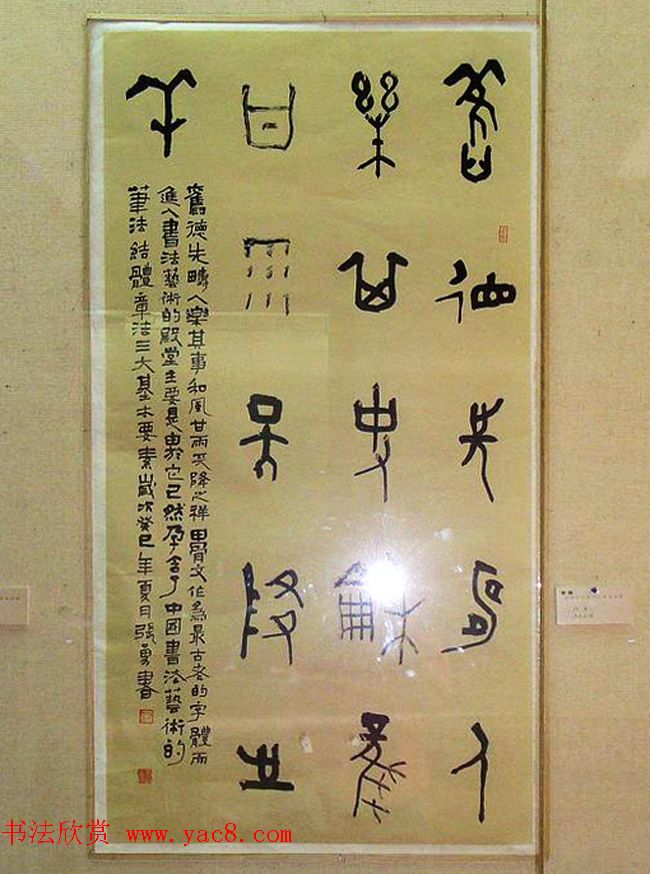 舊德先疇人
樂其事和風
甘雨天降之
祥
舊德先疇人樂其事和風甘雨天降之祥甲骨文作為最古老的字體而
進入書法藝術的殿堂主要是由於它已然孕含了中國書法藝術的
筆法結體章法三大基本要素歲次癸巳年夏月張勇書
书法欣赏 www.yac8.com